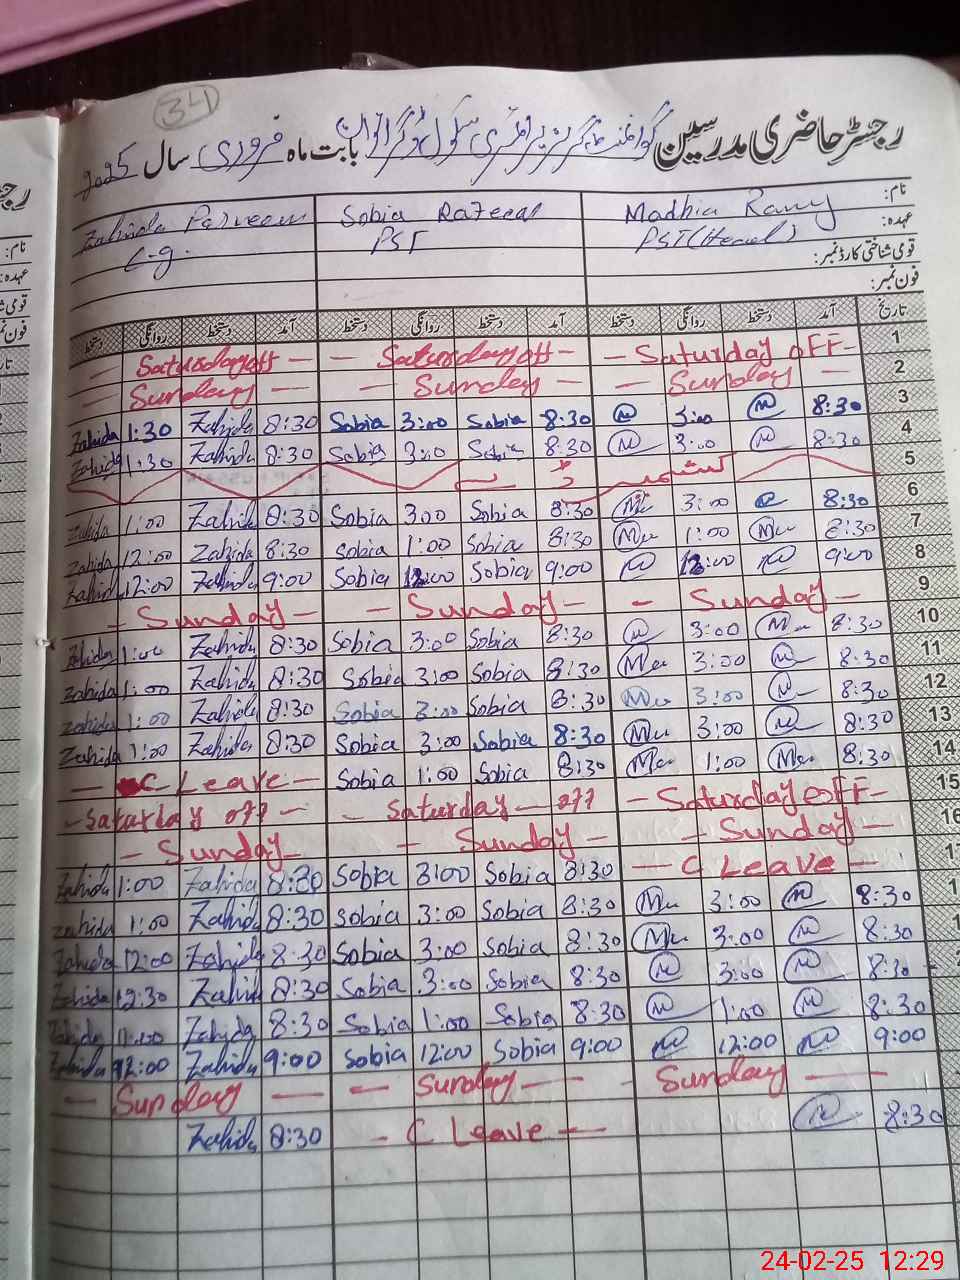 34
رجسٹر حاضری مدرسین گورنمنٹ گرلز پرائمری سکول بابت ماہ فروری سال 2025
نام: Madhia Ramy Sobia Razzaq Zahida Parveen
عہدہ: PST (Head) PST C-g.
قومی شناختی کارڈ نمبر:
فون نمبر:
تاریخ آمد دستخط روانگی دستخط آمد دستخط روانگی دستخط آمد دستخط روانگی دستخط
— Saturday off — — Saturday off — — Saturday OFF — 1
— Sunday — — Sunday — — Sunday — 2
Zahida 1:30 Zahida 8:30 Sobia 3:00 Sobia 8:30 M 3:00 M 8:30 3
Zahida 1:30 Zahida 8:30 Sobia 3:00 Sobia 8:30 M 3:00 M 8:30 4
کشمیر ڈے 5
Zahida 1:00 Zahida 8:30 Sobia 3:00 Sobia 8:30 3:00 8:30 6
Zahida 12:00 Zahida 8:30 Sobia 1:00 Sobia 8:30 1:00 8:30 7
Zahida 12:00 Zahida 9:00 Sobia 12:00 Sobia 9:00 12:00 9:00 8
— Sunday — — Sunday — — Sunday — 9
Zahida 1:00 Zahida 8:30 Sobia 3:00 Sobia 8:30 3:00 8:30 10
Zahida 1:00 Zahida 8:30 Sobia 3:00 Sobia 8:30 3:00 8:30 11
Zahida 1:00 Zahida 8:30 Sobia 3:00 Sobia 8:30 3:00 8:30 12
Zahida 1:00 Zahida 8:30 Sobia 3:00 Sobia 8:30 3:00 8:30 13
— C Leave — Sobia 1:00 Sobia 8:30 1:00 8:30 14
— Saturday off — — Saturday — off — Saturday OFF — 15
— Sunday — — Sunday — — Sunday — 16
Zahida 1:00 Zahida 8:30 Sobia 3:00 Sobia 8:30 — C Leave —
Zahida 1:00 Zahida 8:30 Sobia 3:00 Sobia 8:30 3:00 8:30
Zahida 12:00 Zahida 8:30 Sobia 3:00 Sobia 8:30 3:00 8:30
Zahida 12:30 Zahida 8:30 Sobia 3:00 Sobia 8:30 3:00 8:30
Zahida Zahida 8:30 Sobia 1:00 Sobia 8:30 1:00 8:30
Zahida 12:00 Zahida 9:00 Sobia 12:00 Sobia 9:00 12:00 9:00
— Sunday — — Sunday — — Sunday —
Zahida 8:30 — C Leave — 8:30
24-02-25 12:29